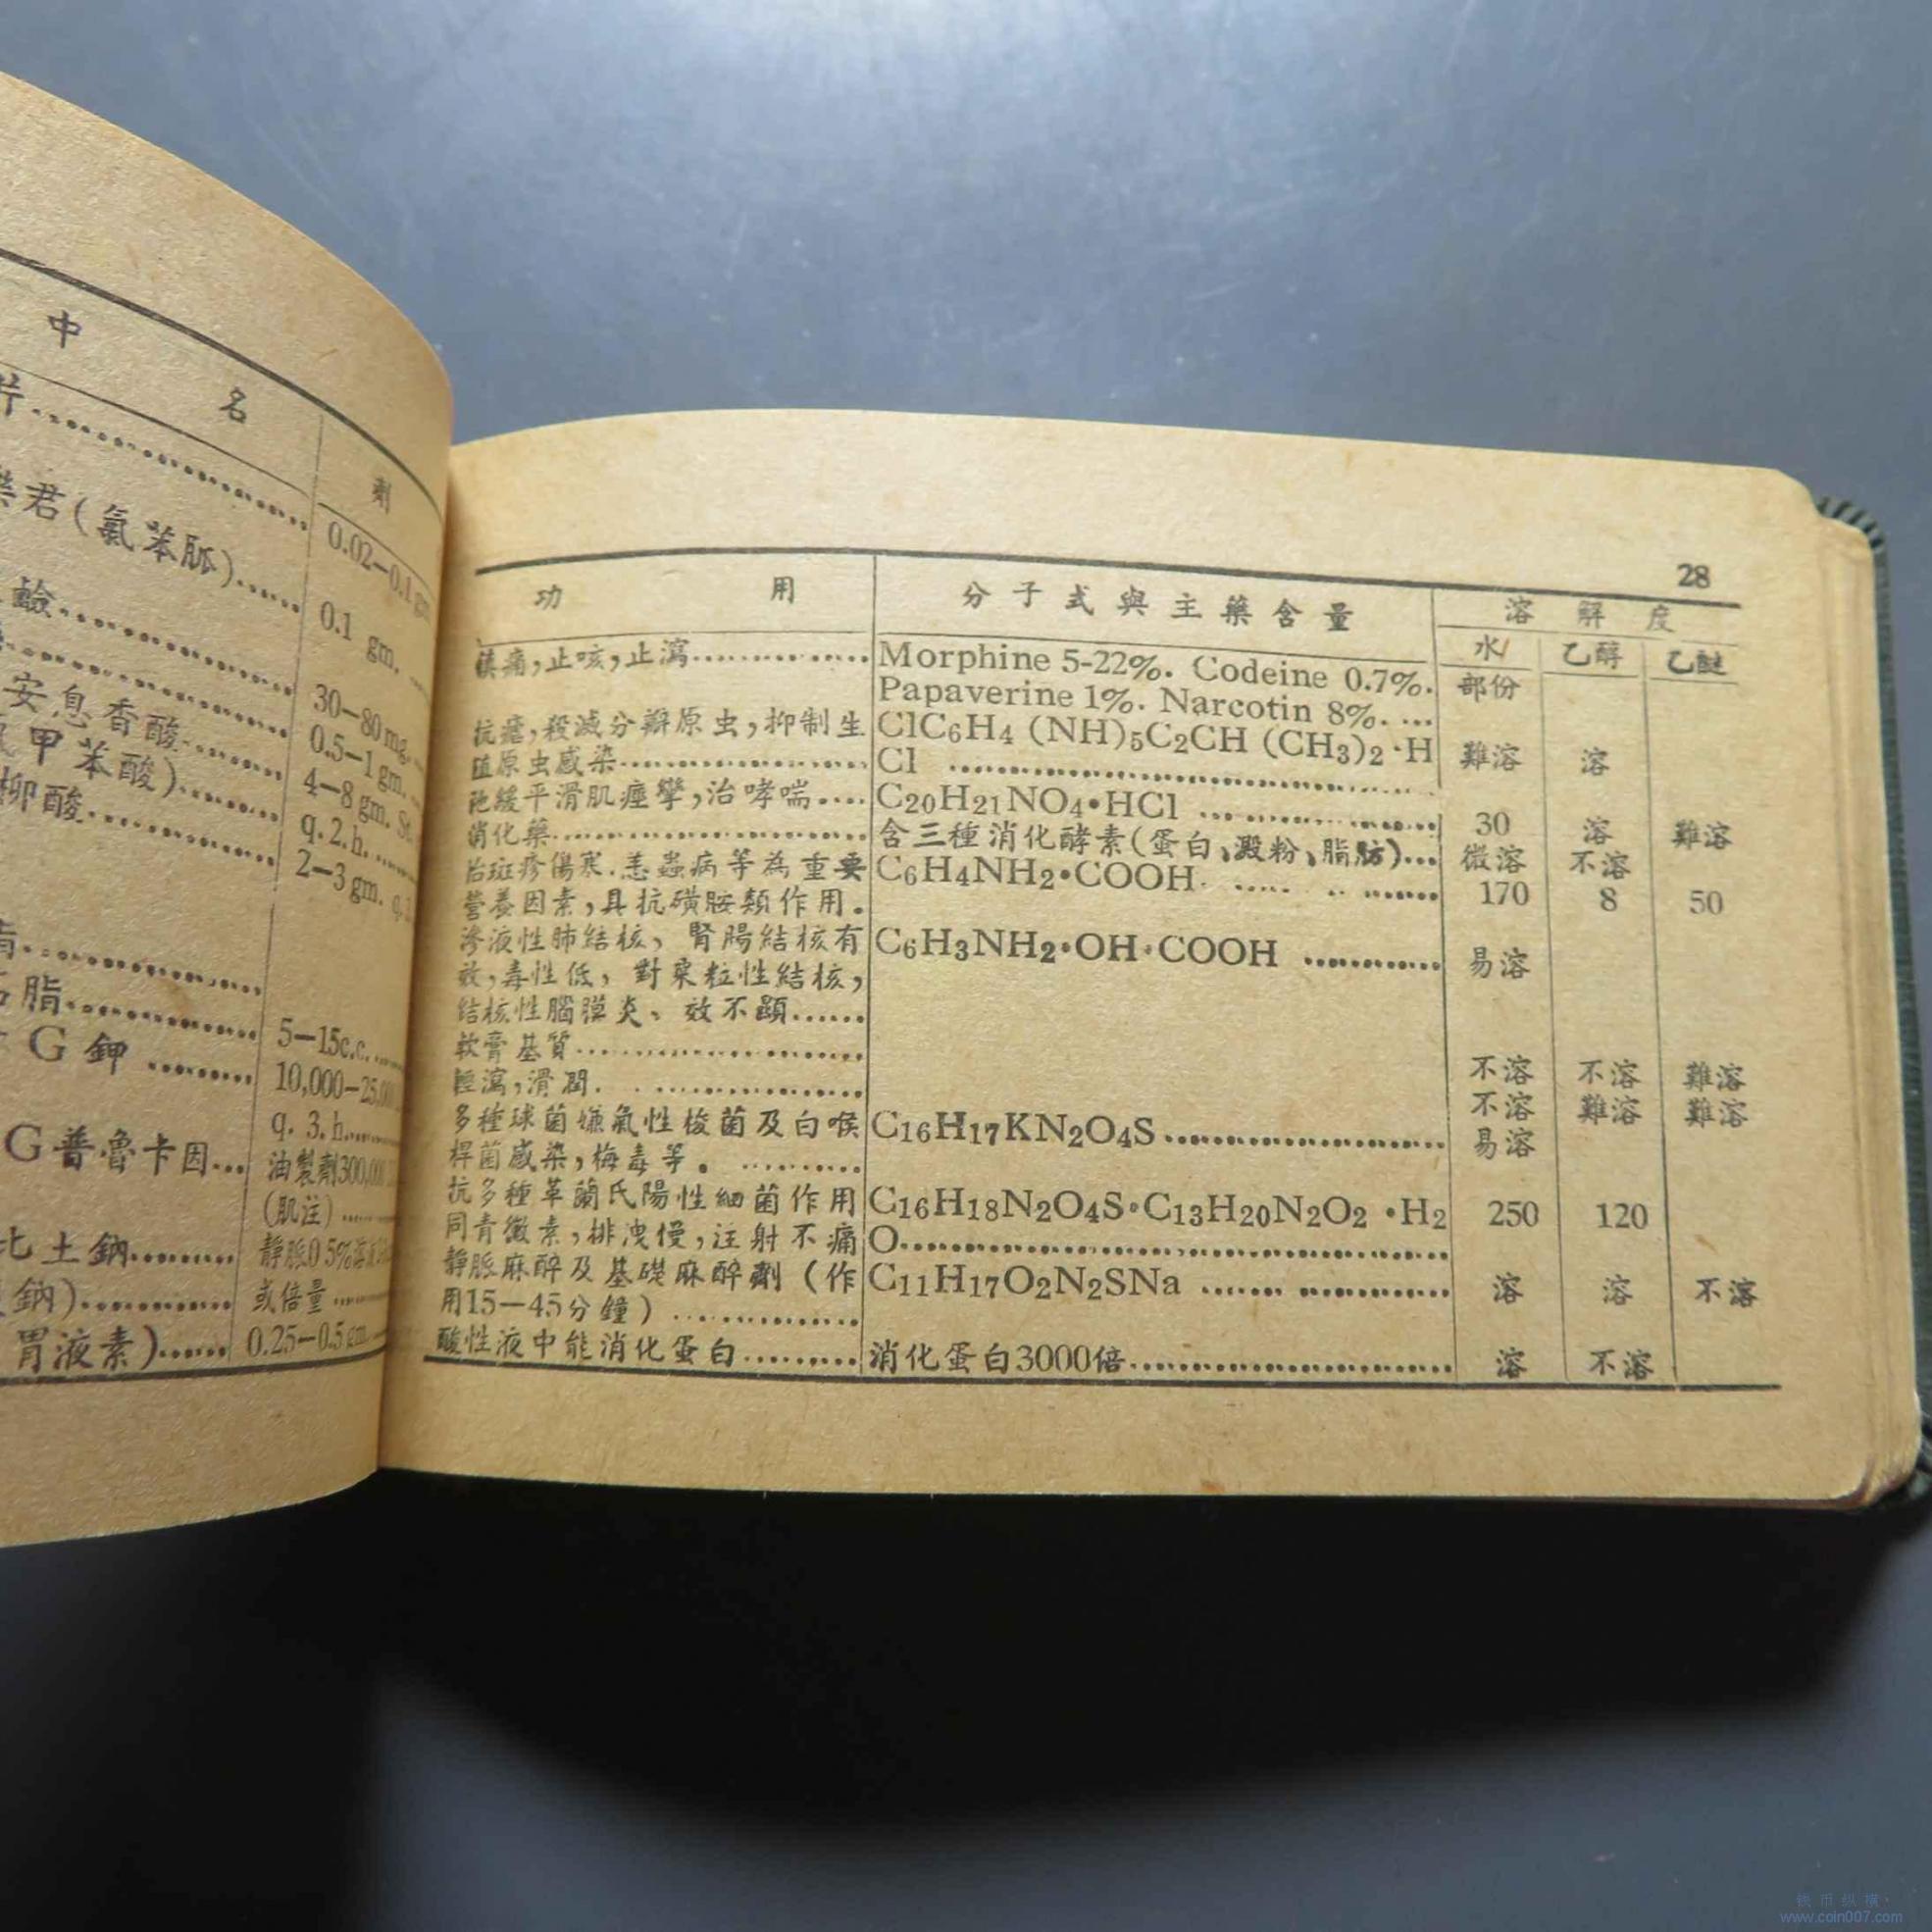 中 名
劑
片
0.02—0.1 gm
樂君(氯苯胍)
0.1 gm.
鹼
30—80 mg.
0.5—1 gm.
安息香酸
4—8 gm. St.
甲苯酸)
q. 2. h.
柳酸
2—3 gm. q.
脂
5—15c.c.
G 鉀
10,000—25,0
q. 3. h.
G普魯卡因
油製劑300,00
(肌注)
比土鈉
靜脈0.5%溶
鈉)
或倍量
胃液素)
0.25—0.5 gm
28
功 用 分子式與主藥含量 溶解度
水 乙醇 乙醚
鎮痛,止咳,止瀉 Morphine 5-22%. Codeine 0.7%. 部份
Papaverine 1%. Narcotin 8%.
抗瘧,殺滅分瓣原虫,抑制生 ClC6H4 (NH)5C2CH (CH3)2 ·H 難溶 溶
殖原虫感染 Cl
弛緩平滑肌痙攣,治哮喘 C20H21NO4•HCl 30 溶 難溶
消化藥 含三種消化酵素(蛋白、澱粉、脂肪) 微溶 不溶
治斑疹傷寒.恙蟲病等為重要 C6H4NH2•COOH 170 8 50
營養因素,具抗磺胺類作用.
滲液性肺結核、腎腸結核有 C6H3NH2•OH•COOH 易溶
效,毒性低,對粟粒性結核,
結核性腦膜炎、效不顯
軟膏基質 不溶 不溶 難溶
輕瀉,滑潤. 不溶 難溶 難溶
多種球菌嫌氣性梭菌及白喉 C16H17KN2O4S 易溶
桿菌感染,梅毒等.
抗多種革蘭氏陽性細菌作用 C16H18N2O4S•C13H20N2O2 •H2 250 120
同青黴素,排洩慢,注射不痛 O
靜脈麻醉及基礎麻醉劑(作 C11H17O2N2SNa 溶 溶 不溶
用15—45分鐘)
酸性液中能消化蛋白 消化蛋白3000倍 溶 不溶
钱币纵横
www.coin007.com